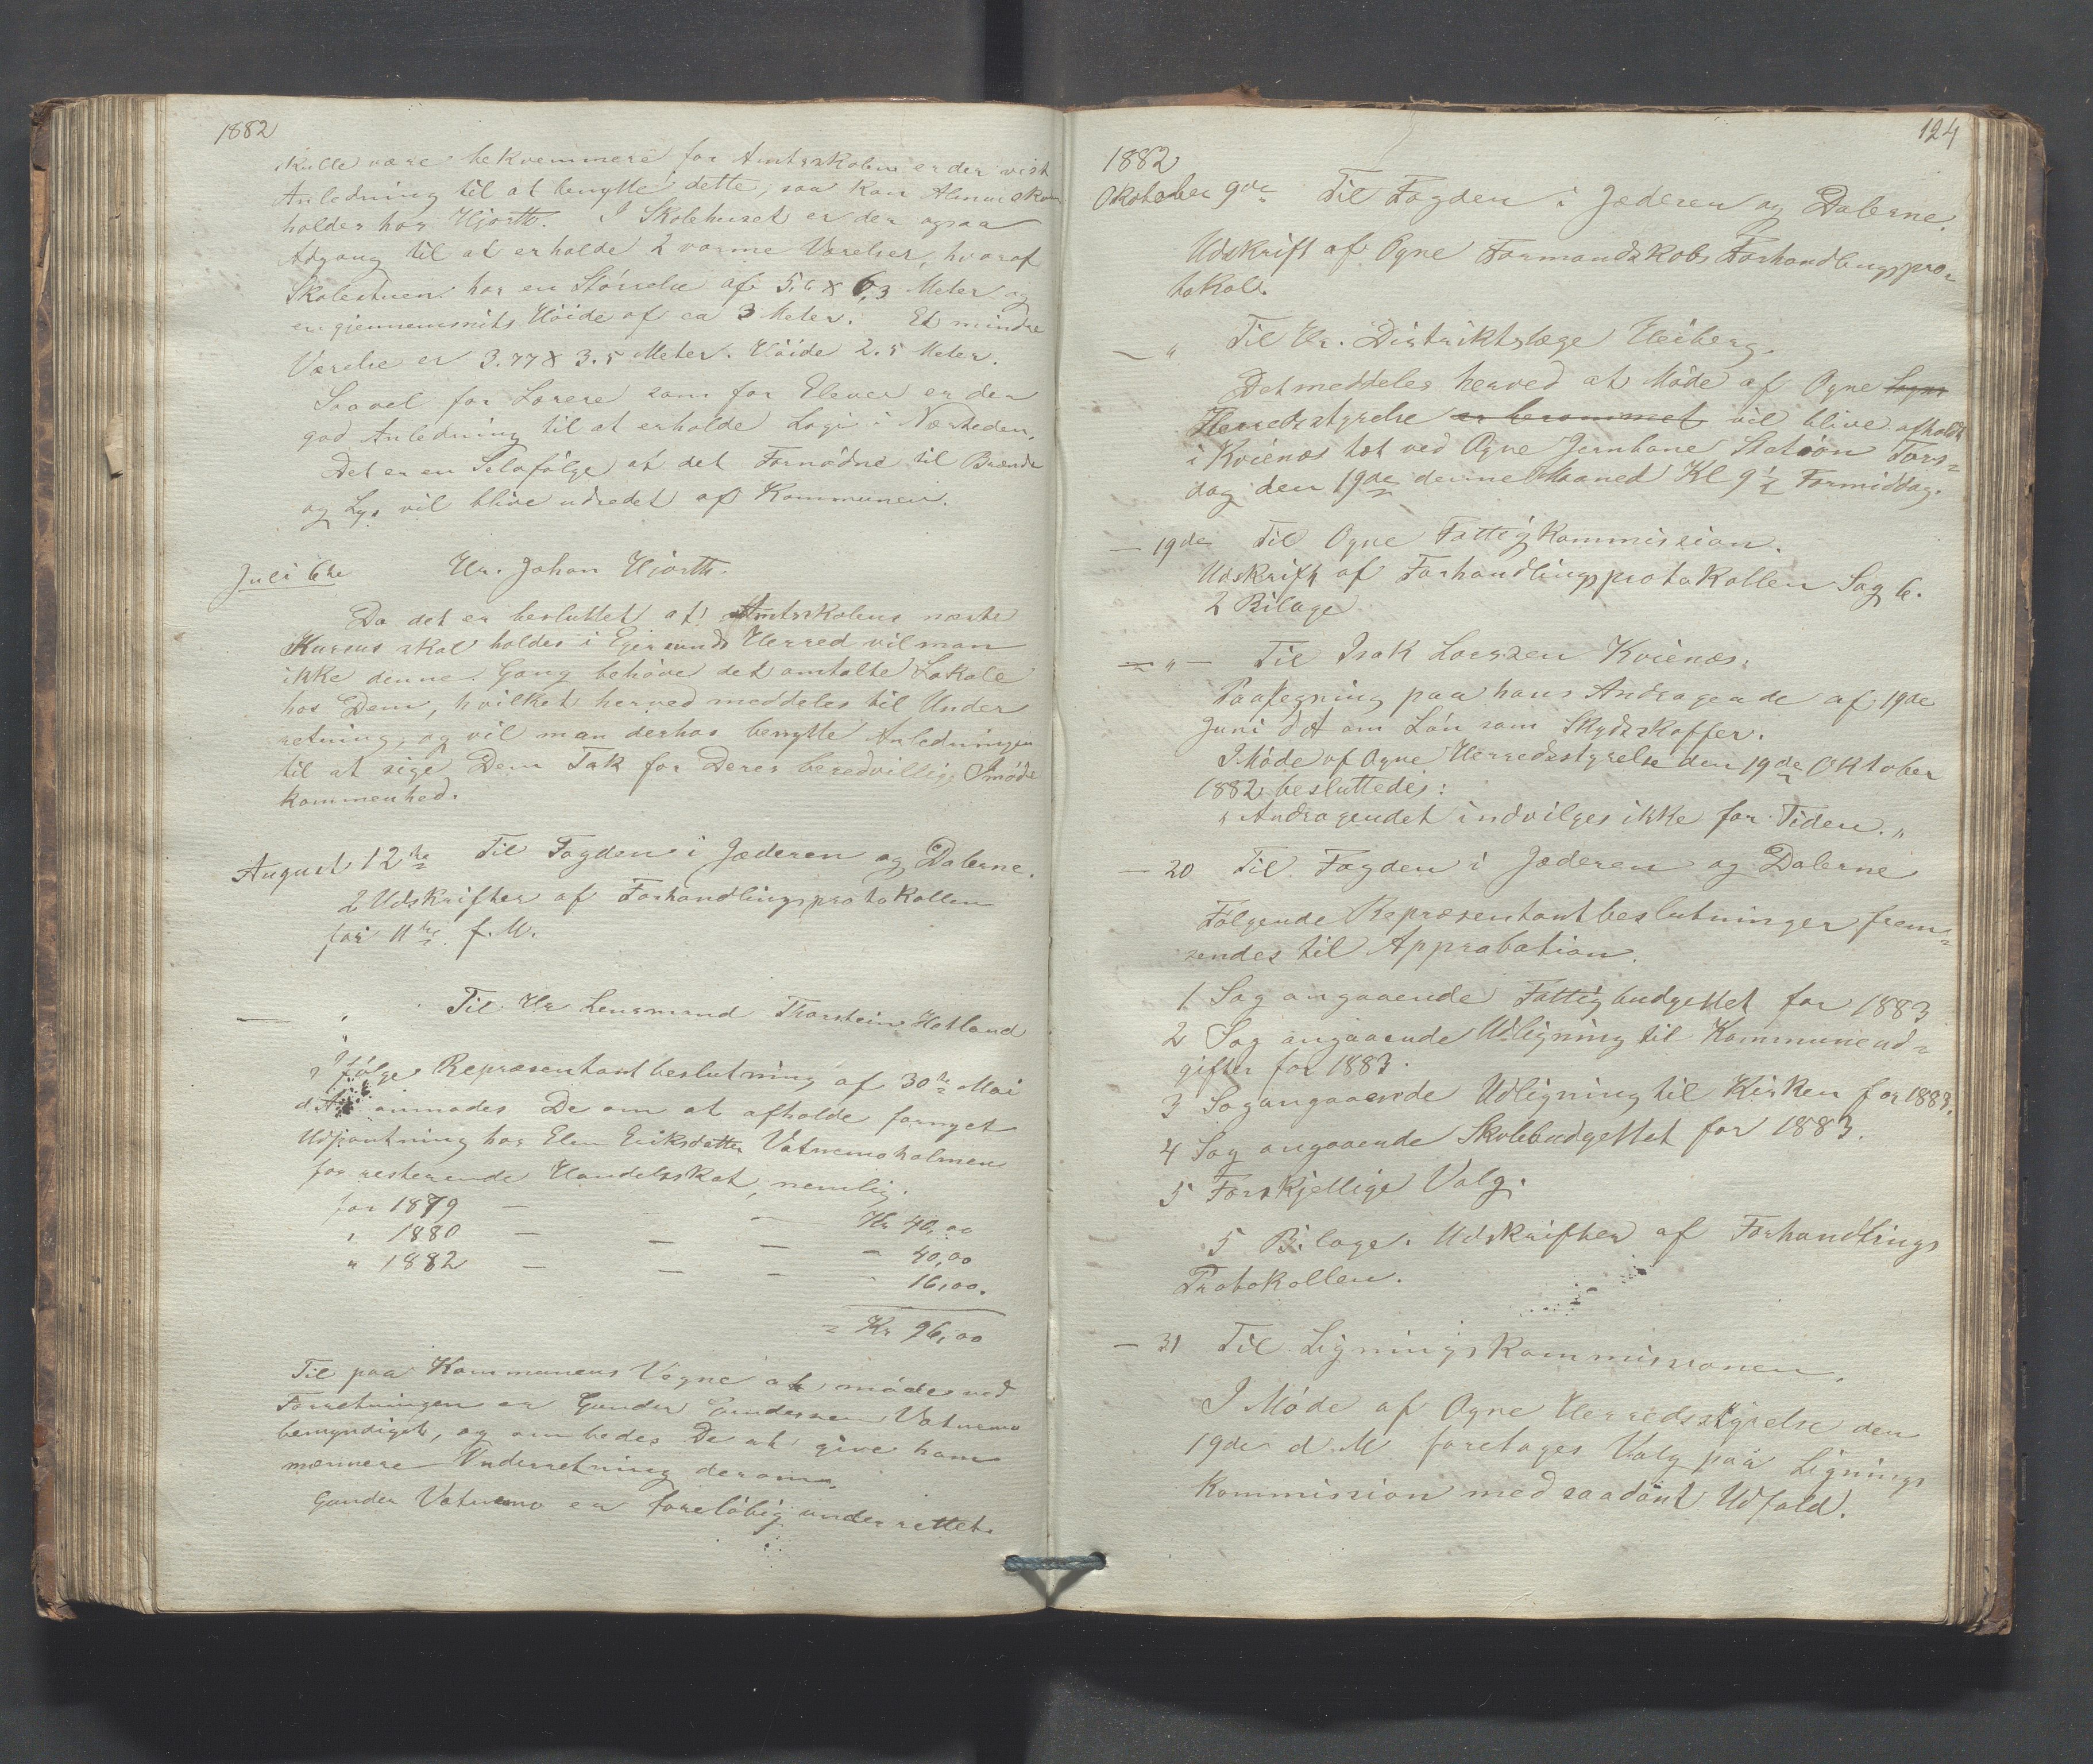 1882
skulle være bekvemmere for Amtsskolen er der vist
Anledning til at benytte dette, saa kan Almueskolen
holdes hos Hjorth. I Skolehuset er der ogsaa
Adgang til at erholde 2 varme Værelser, hvoraf
Skolestuen har en Störrelse af 5,6 X 6,3 Meter og
en gjennemsnits Höide af ca 3 Meter. Et mindre
Værelse er 3.77 X 3.5 Meter. Höide 2.5 Meter.
Saavel for Lærere som for Elever er der
god Anledning til at erholde Logi i Nærheden.
Det er en Selvfölge at det Fornödne til Brænde
og Lys vil blive udredet af Kommunen.
Juli 6te Hr. Johan Hjorth.
Da det er besluttet at Amtsskolens næste
Kursus skal holdes i Egersunds Herred vil man
ikke denne Gang behöve det omtalte Lokale
hos Dem, hvilket herved meddeles til Under
retning, og vil man derhos benytte Anledningen
til at sige Dem Tak for Deres beredvillige Imöde
kommenhed.
August 12te Til Fogden i Jæderen og Dalerne.
2 Udskrifter af Forhandlingsprotokollen
for 11te f. M.
— " Til Hr Lensmand Thorstein Hetland
Ifölge Repræsentantbeslutning af 30te Mai
d. A. anmodes De om at afholde fornyet
Udpantning hos Elen Eriksdatter Vatnemoholmen
for resterende Handelsskat, nemlig.
for 1879 — — — Kr 40,00
" 1880 — — — - 40,00
" 1882 — — — - 16,00.
= Kr 96,00
Til paa Kommunens Vegne at möde ved
Forretningen er Gunder Gundersen Vatnemo
bemyndiget, og ombedes De at give ham
nærmere Underretning derom.
Gunder Vatnemo er forelöbig underrettet.
124
1882
Oktober 9de Til Fogden i Jæderen og Dalerne.
Udskrift af Ogne Formandskabs Forhandlingspro=
tokol.
— " Til Hr. Distriktslæge Heiberg.
Det meddeles herved at Möde af Ogne Sogns
Herredsstyrelse er berammet vil blive afholdt
i Kvienæs tæt ved Ogne Jernbane Station Tors=
dag den 19de denne Maaned Kl 9½ Formiddag.
— 19de Til Ogne Fattigkommission.
Udskrift af Forhandlingsprotokollen Sag 6.
2 Bilage
— " — Til Isak Larssen Kvienæs.
Paategning paa hans Andragende af 19de
Juni d A om Lön som Skydsskaffer.
I Möde af Ogne Herredsstyrelse den 19de Oktober
1882 besluttedes:
"Andragendet indvilges ikke for Tiden."
— 20 Til Fogden i Jæderen og Dalerne
Fölgende Repræsentantbeslutninger frem=
sendes til Approbation.
1 Sag angaaende Fattigbudgettet for 1883
2 Sag angaaende Udligning til Kommuneud=
gifter for 1883.
3 Sag angaaende Udligning til Kirken for 1883.
4 Sag angaaende Skolebudgettet for 1883.
5 Forskjellige Valg.
5 Bilage. Udskrifter af Forhandlings
Protokollen.
— 31 Til Ligningskommissionen.
I Möde af Ogne Herredsstyrelse den
19de d. M foretages Valg paa Lignings
kommission med saadant Udfald.